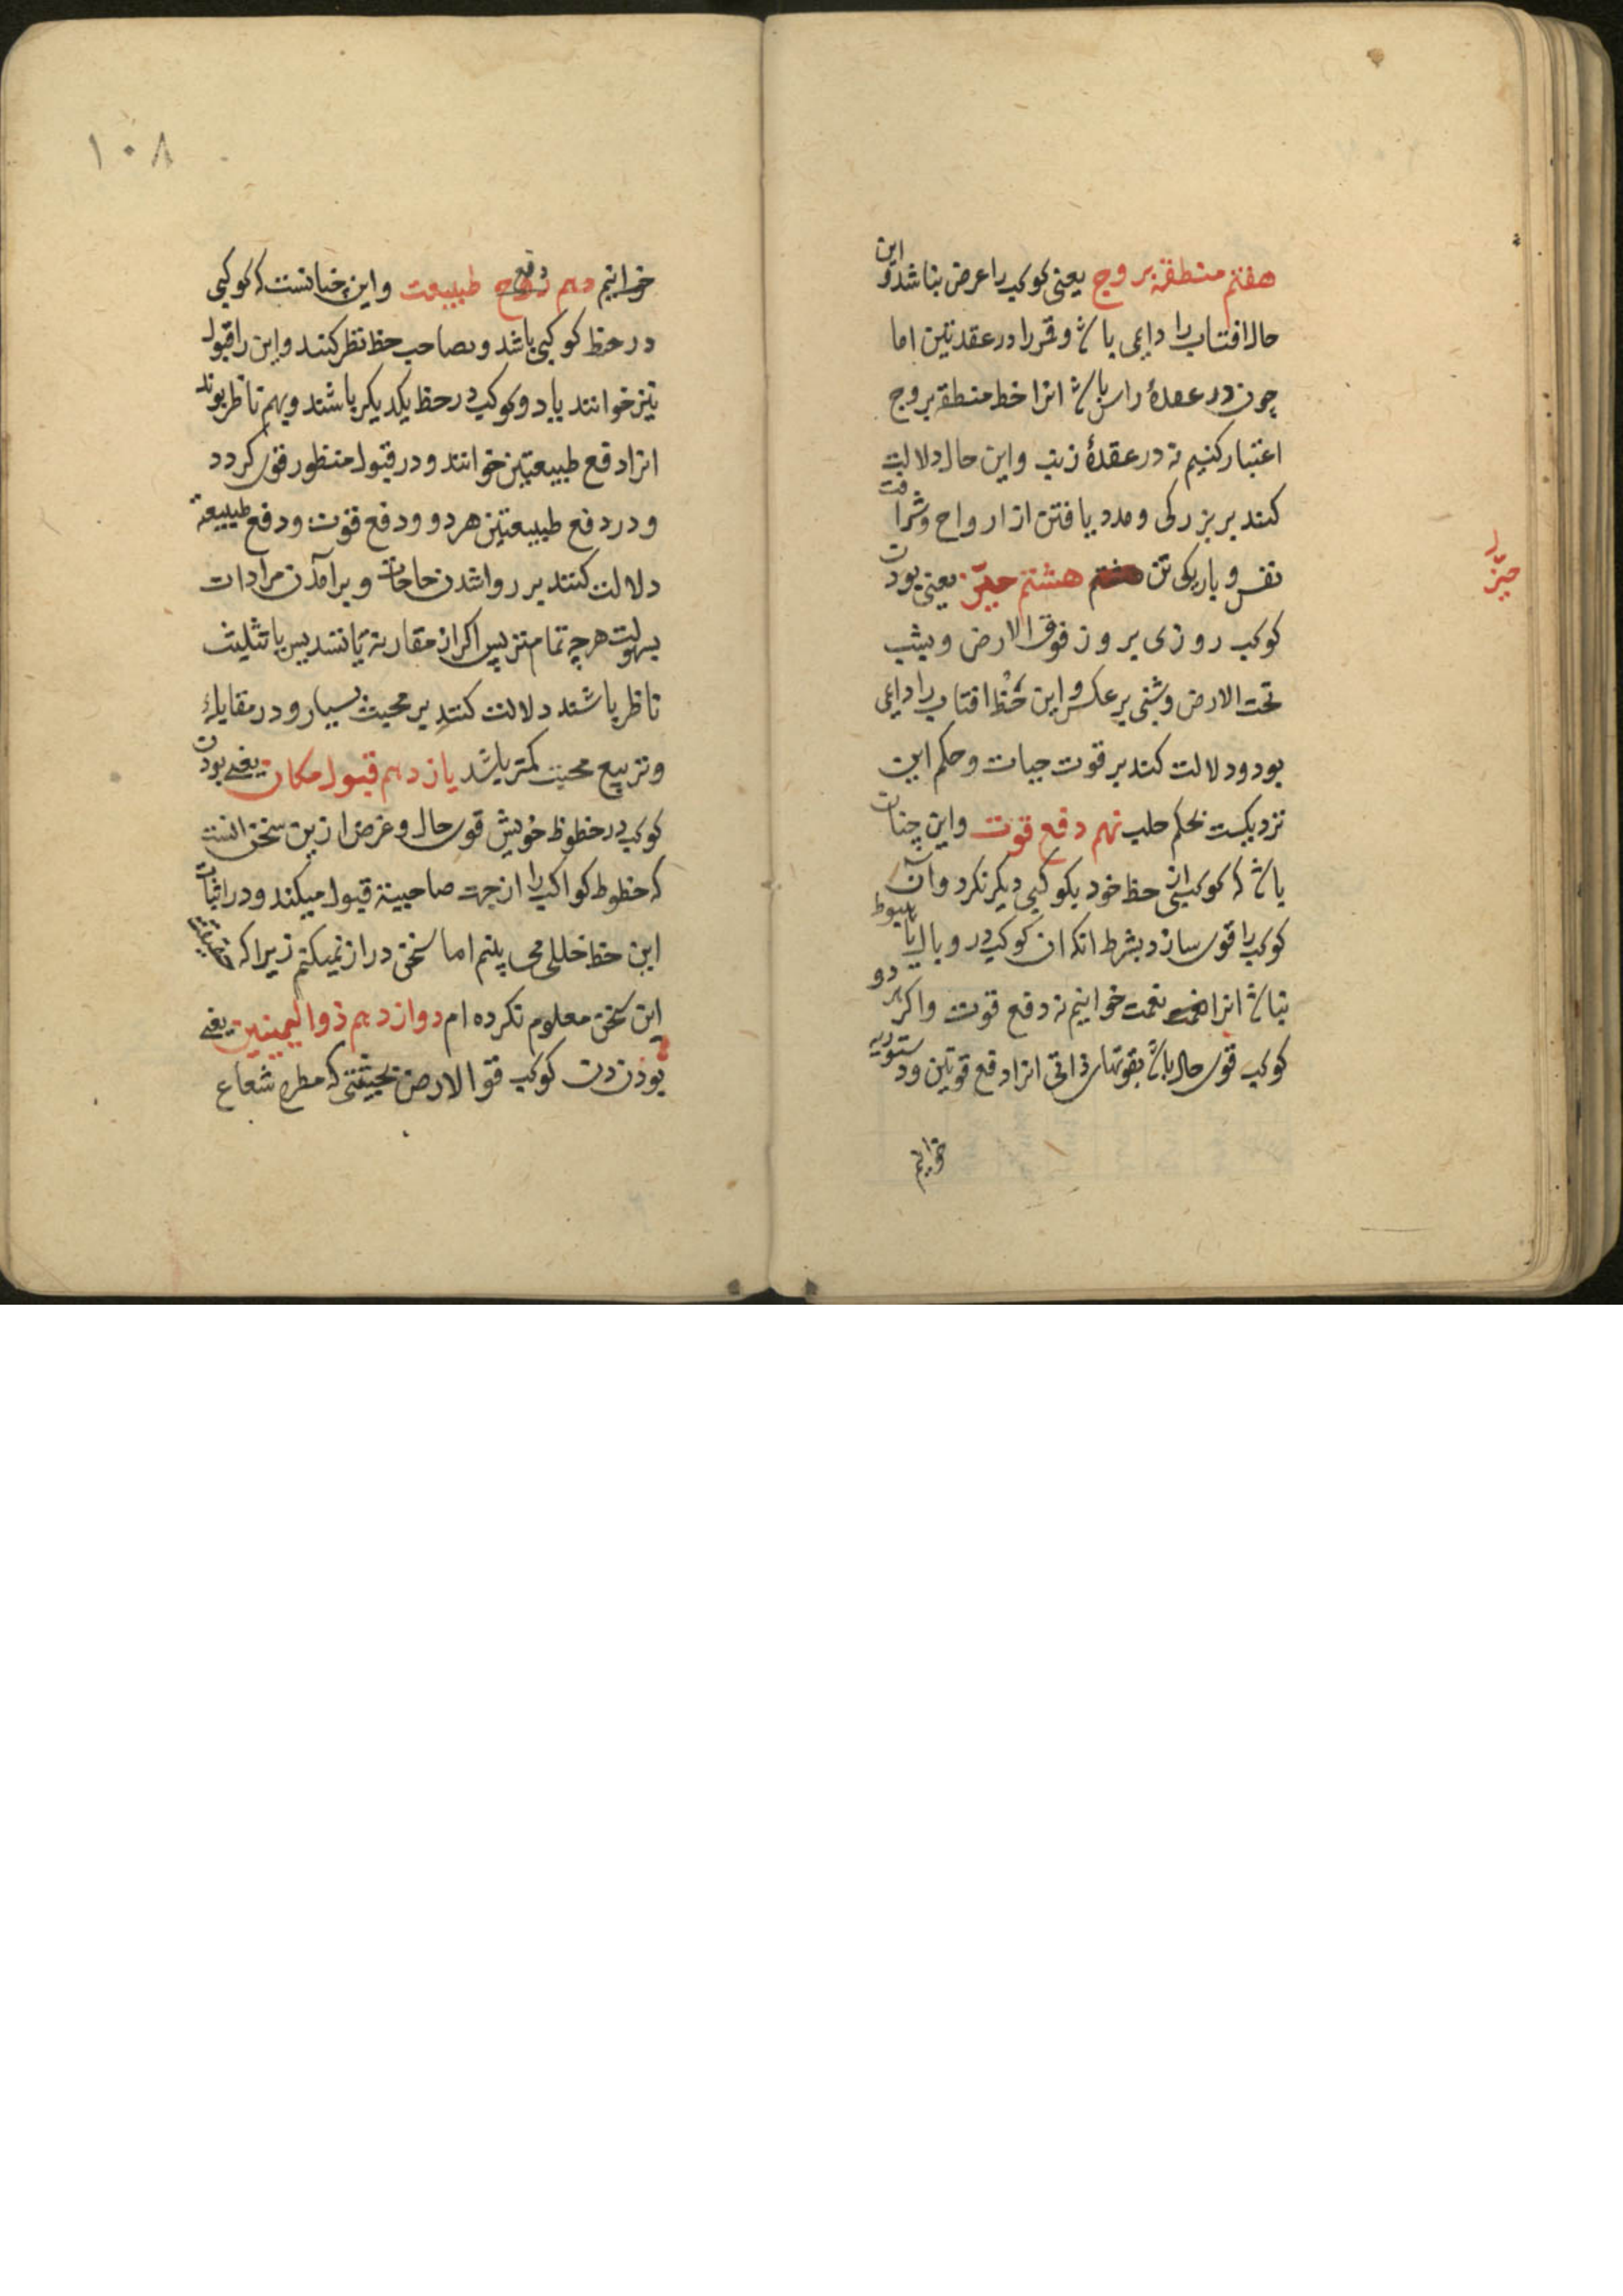 هفتم منطقهٔ بروج یعنی کوکب را عرض نباشد و این
حال افتاب را دایمی باشد و قمر را در عقدتین اما
چون در عقدهٔ راس باشد انرا خط منطقه بروج
اعتبار کنیم نه در عقدهٔ ذنب و این حال دلالت
کند بر بزرکی و مدد یافتن از ارواح و شرافت
نفس و باریکی تن هشتم حیز یعنی بودن
حیز
کوکب روزی بروز فوق الارض و بشب
تحت الارض و شبی برعکس و این حظ افتاب را دایمی
بود و دلالت کند بر قوت حیات و حکم این
نزدیکست بحکم حلب نهم دفع قوت و این چنان
باشد که کوکبی از حظ خود بکوکبی دیکر نکرد و آن
کوکب را قوی سازد بشرط انکه ان کوکب در وبال یا هبوط
نباشد انرا نعمت خوانیم نه دفع قوت و اکر هر دو
کوکب قوی حال باشد بقوتهای ذاتی انرا دفع قوتین و دستوریه
خوانیم
۱۰۸
خوانیم دهم دفع طبیعت و این چنانست که کوکبی
در حظ کوکبی باشد و بصاحب حظ نظر کنند و این را قبول
نیز خوانند یا دو کوکب در حظ یکدیکر باشند و بهم ناظر بوند
انرا دفع طبیعتین خوانند و در قبول منظور قوی کردد
و در دفع طبیعتین هر دو و دفع قوت و دفع طبیعة
دلالت کنند بر روا شدن حاجات و برامدن مرادات
بسهولت هرچه تمامتر پس اکر از مقارنه یا تسدیس یا تثلیث
ناظر باشند دلالت کنند بر محبت بسیار و در مقابلهٔ
و تربیع محبت کمتر باشد یازدهم قبول مکان یعنی بودن
کوکب در حظوظ خویش قوی حال و غرض ازین سخن انست
که حظوظ کواکب را از جهت صاحبیته قبول میکند و در اثبات
این حظ خللی می بینم اما سخن دراز نمیکنم زیرا که حقیقة
این سخن معلوم نکرده ام دوازدهم ذوالیمینین یعنی
بودن کوکب فوق الارض بحیثیتی که مطرح شعاع